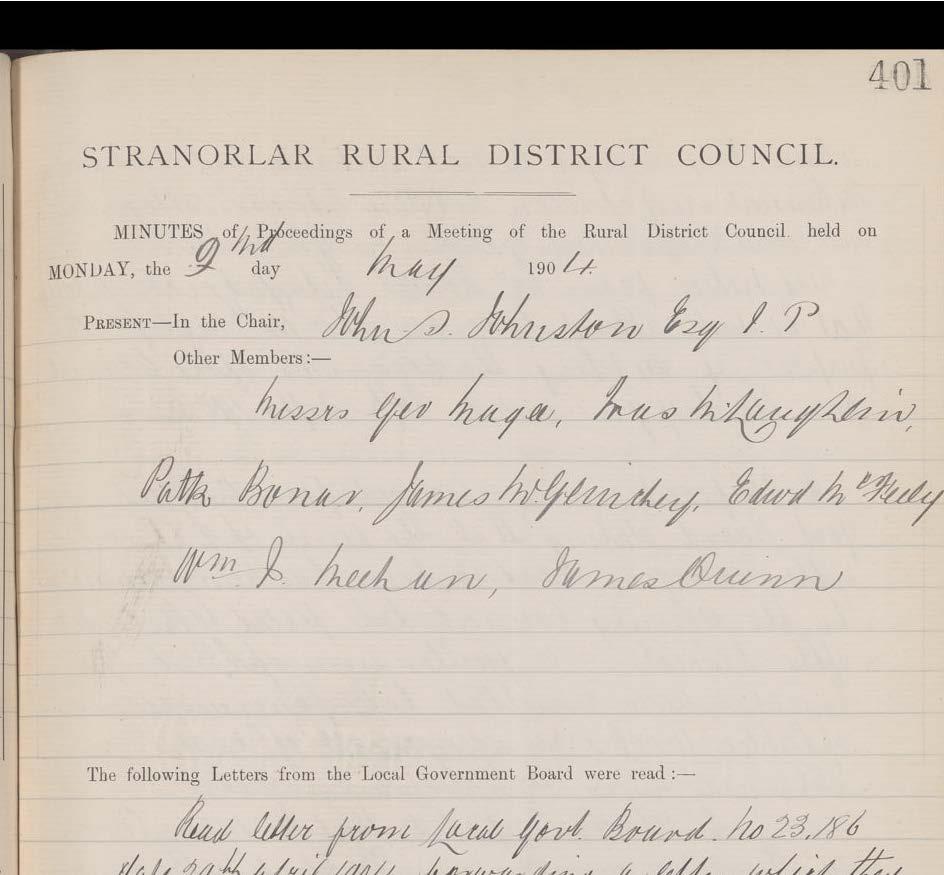 401
STRANORLAR RURAL DISTRICT COUNCIL.
MINUTES of Proceedings of a Meeting of the Rural District Council held on
MONDAY, the 2nd day May 1904.
PRESENT—In the Chair, John S. Johnston Esq J. P
Other Members:—
Messrs Geo Magee, McLaughlin,
Patk Bonar, James McGlinchey, Edwd McFeely
Wm J. Meehan, James Quinn
The following Letters from the Local Government Board were read:—
Read letter from Local Govt. Board. No 23.186
date april 1904 forwarding a letter which they